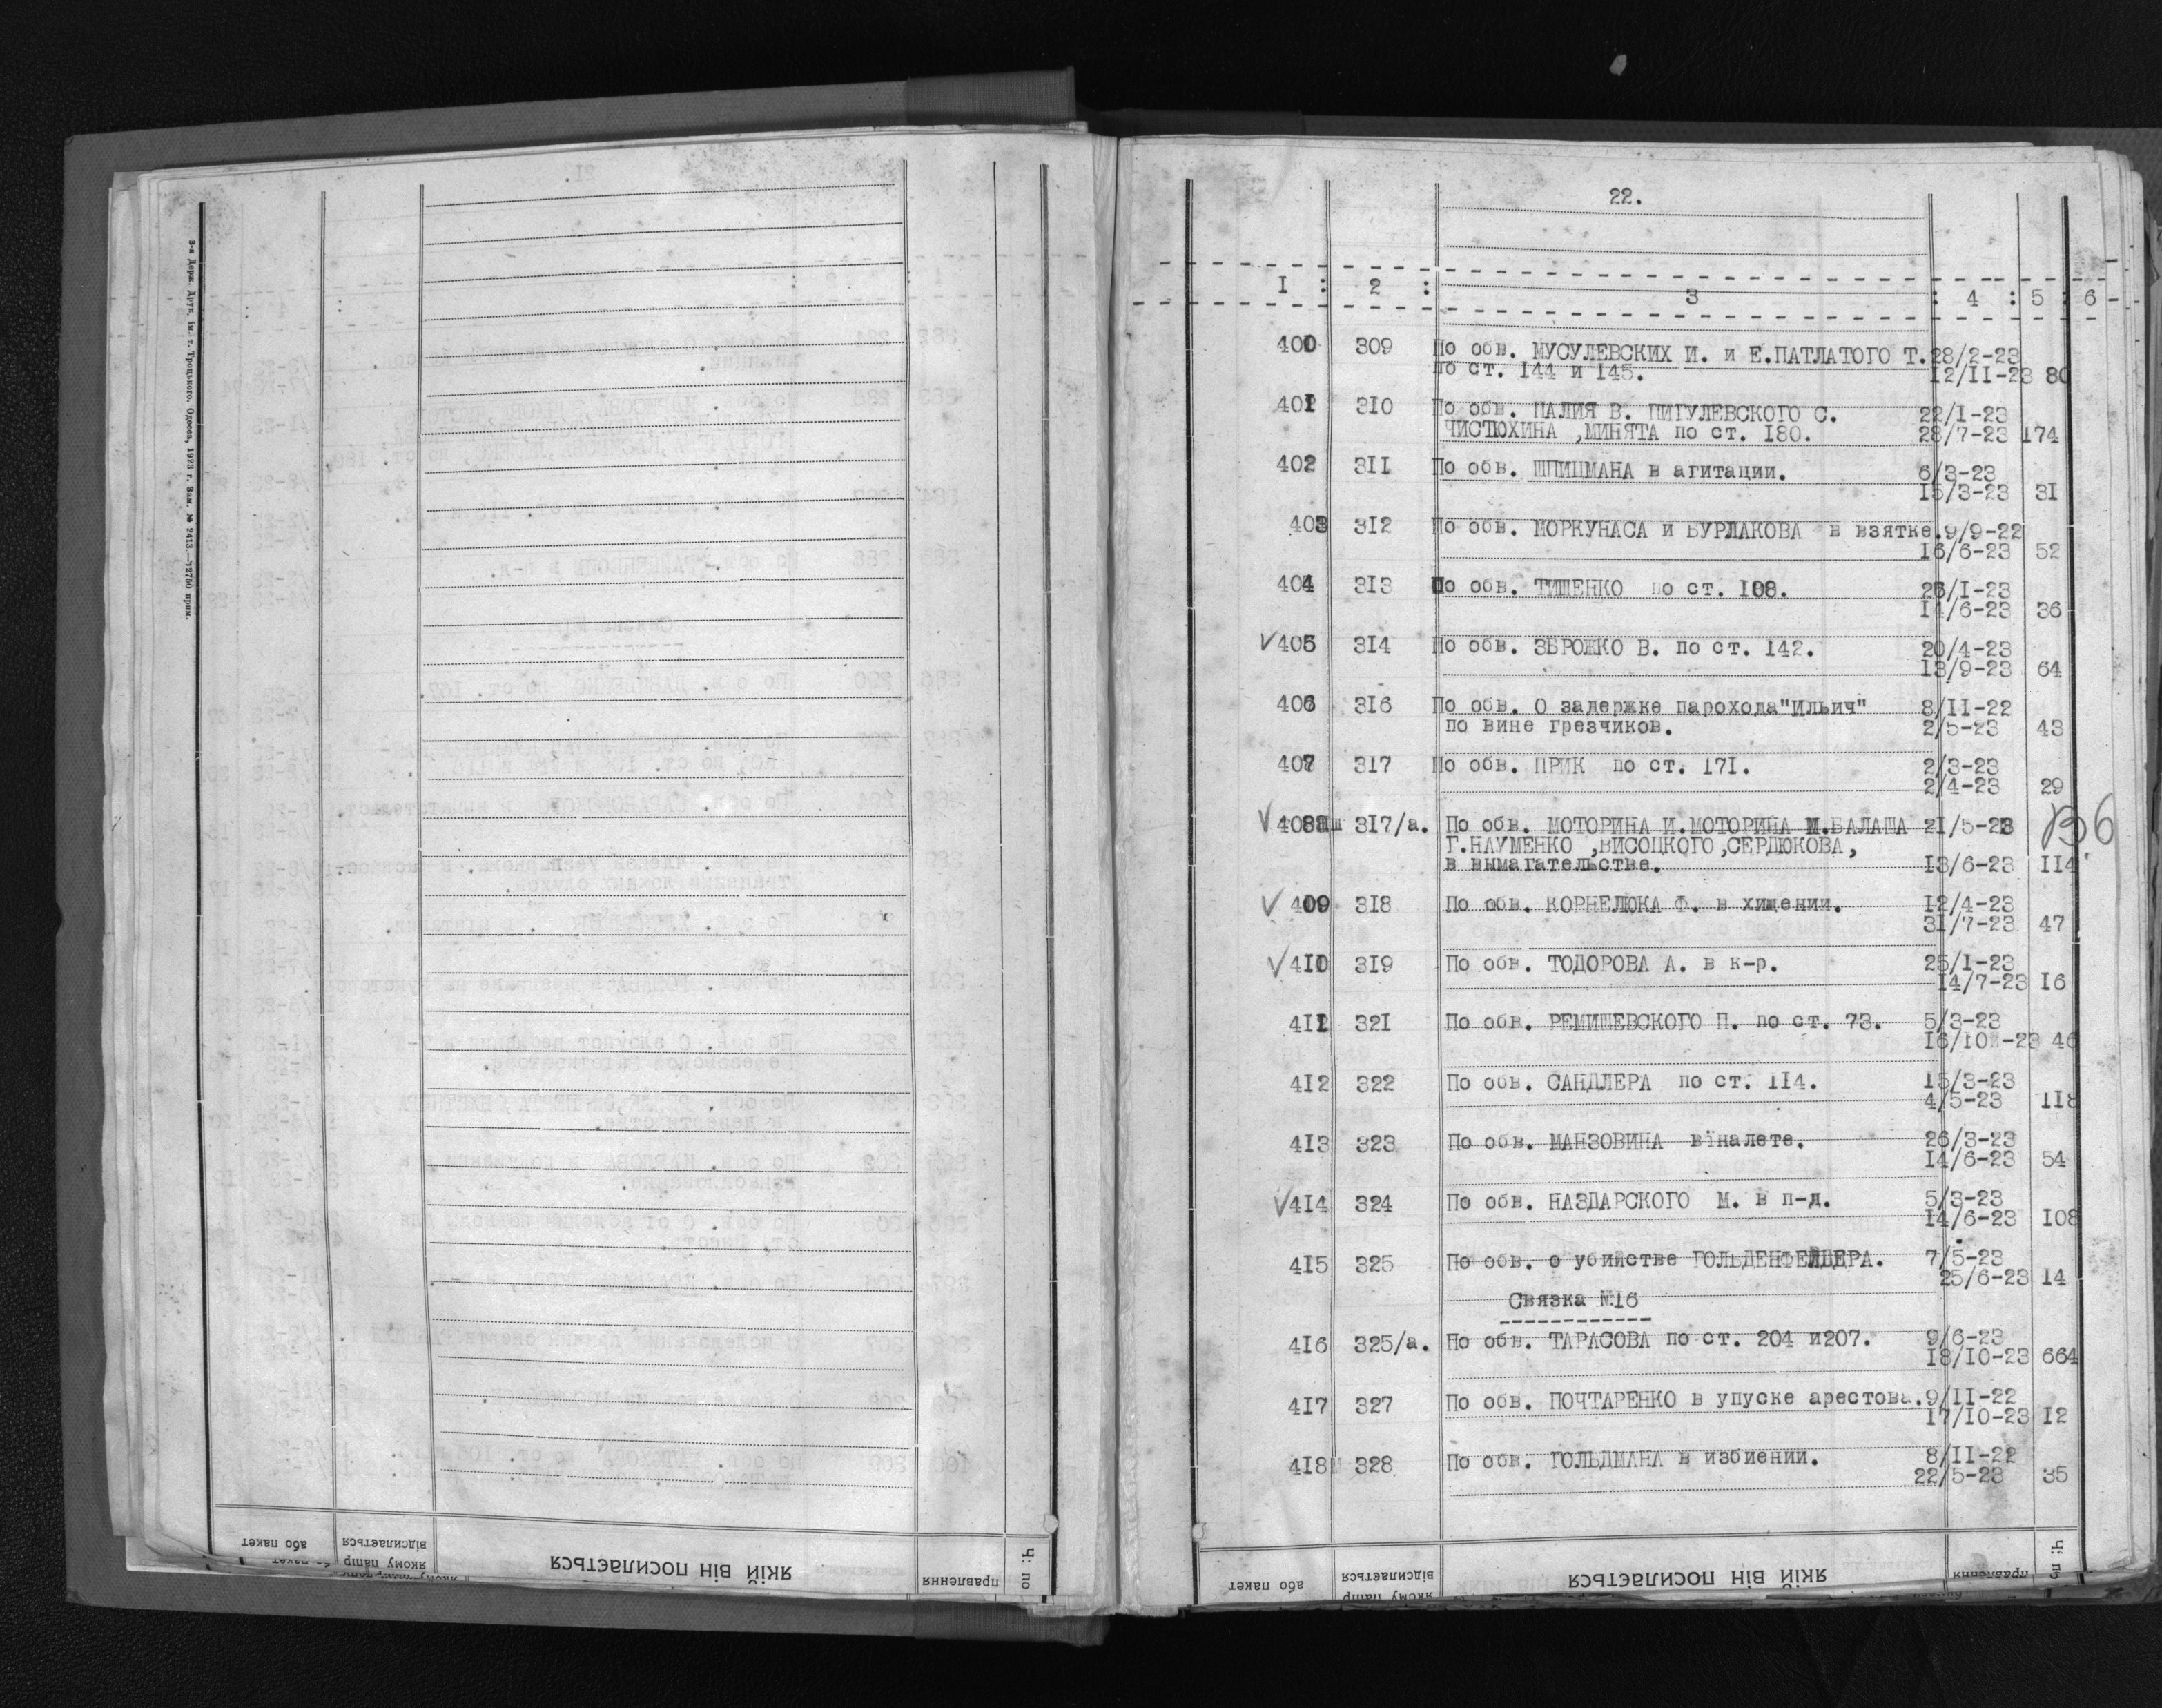 3-я Держ. Друк. ім. т. Троцького. Одесса, 1923 г. Зам. № 2413.—12750 прим.
або пакет
відсилається
якому папір
ЯКІЙ ВІН ПОСИЛАЄТЬСЯ
правлення
Ч. по
22.
I : 2 : 3 : 4 : 5 : 6
400 309 По обв. МУСУЛЕВСКИХ И. и Е.ПАТЛАТОГО Т. 28/2-23
по ст. 144 и 145. 12/II-23 80
401 310 По обв. ПАЛИЯ В. ПИГУЛЕВСКОГО С. 22/I-23
ЧИСТЮХИНА ,МИНЯТА по ст. I80. 28/7-23 174
402 3II По обв. ШПИЦМАНА в агитации. 6/3-23
I5/3-23 3I
403 312 По обв. МОРКУНАСА и БУРЛАКОВА в взятке. 9/9-22
I6/6-23 52
404 3I3 По обв. ТИЩЕНКО по ст. 108. 26/I-23
I4/6-23 36
√ 405 3I4 По обв. ЗБРОЖКО В. по ст. I42. 20/4-23
I3/9-23 64
406 3I6 По обв. О задержке парохода"Ильич" 8/II-22
по вине грезчиков. 2/5-23 43
407 3I7 По обв. ПРИК по ст. I7I. 2/3-23
2/4-23 29
√ 408 3I7/а. По обв. МОТОРИНА И.МОТОРИНА М.БАЛАША 2I/5-23
Г.НАУМЕНКО ,ВИСОЦКОГО ,СЕРДЮКОВА,
в вымагательстве. I3/6-23 II4
√ 409 3I8 По обв. КОРНЕЛЮКА Ф. в хищении. I2/4-23
3I/7-23 47
√ 4I0 3I9 По обв. ТОДОРОВА А. в к-р. 25/I-23
I4/7-23 I6
4II 32I По обв. РЕМИШЕВСКОГО П. по ст. 73. 5/3-23
I6/10-23 46
4I2 322 По обв. САНДЛЕРА по ст. II4. I5/3-23
4/5-23 II8
4I3 323 По обв. МАНЗОВИНА в налете. 26/3-23
I4/6-23 54
√ 4I4 324 По обв. НАЗДАРСКОГО М. в п-д. 5/3-23
I4/6-23 I08
4I5 325 По обв. о убийстве ГОЛЬДЕНФЕЙДЕРА. 7/5-23
25/6-23 I4
Связка №I6
4I6 325/а. По обв. ТАРАСОВА по ст. 204 и207. 9/6-23
I8/I0-23 664
4I7 327 По обв. ПОЧТАРЕНКО в упуске арестова. 9/II-22
I7/I0-23 I2
4I8 328 По обв. ГОЛЬДМАНА в избиении. 8/II-22
22/5-23 35
або пакет
відсилається
якому папір
ЯКІЙ ВІН ПОСИЛАЄТЬСЯ
правлення
Ч. по